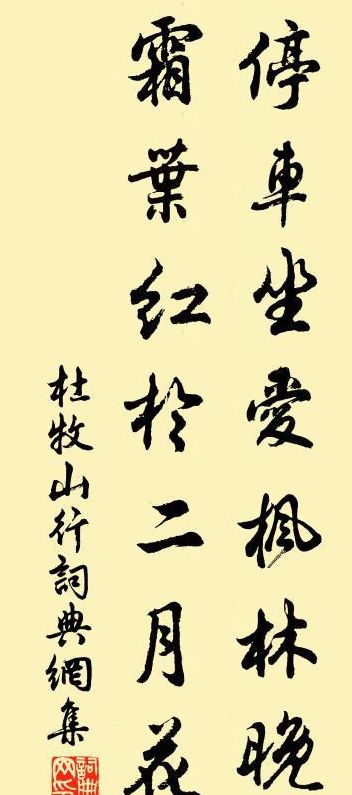 停車坐愛楓林晚
霜葉紅於二月花
杜牧山行詞典網集